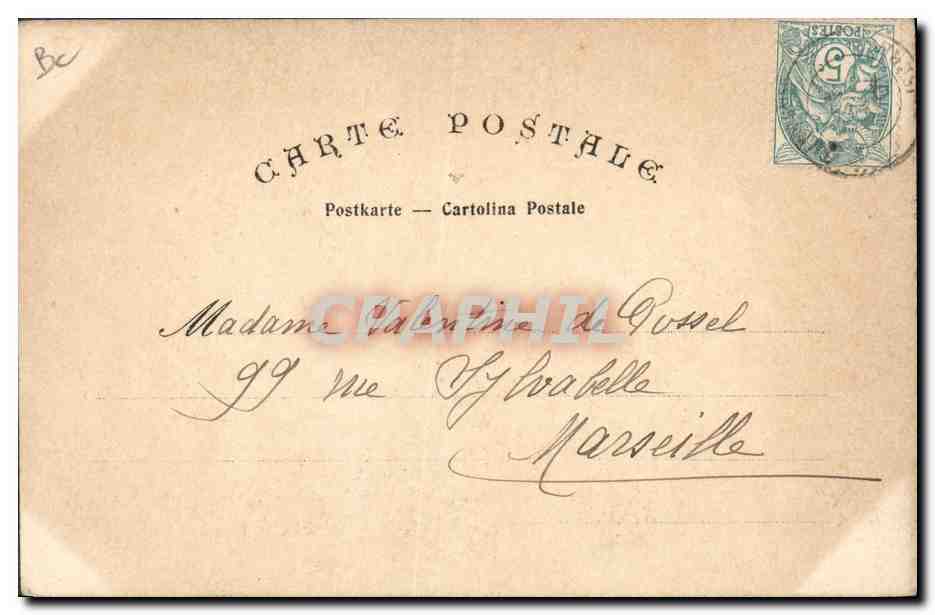 Bc
POSTES
5
CARTE POSTALE
Postkarte — Cartolina Postale
CPAPHIL
Madame Valentine de Possel
99 rue Sylvabelle
Marseille